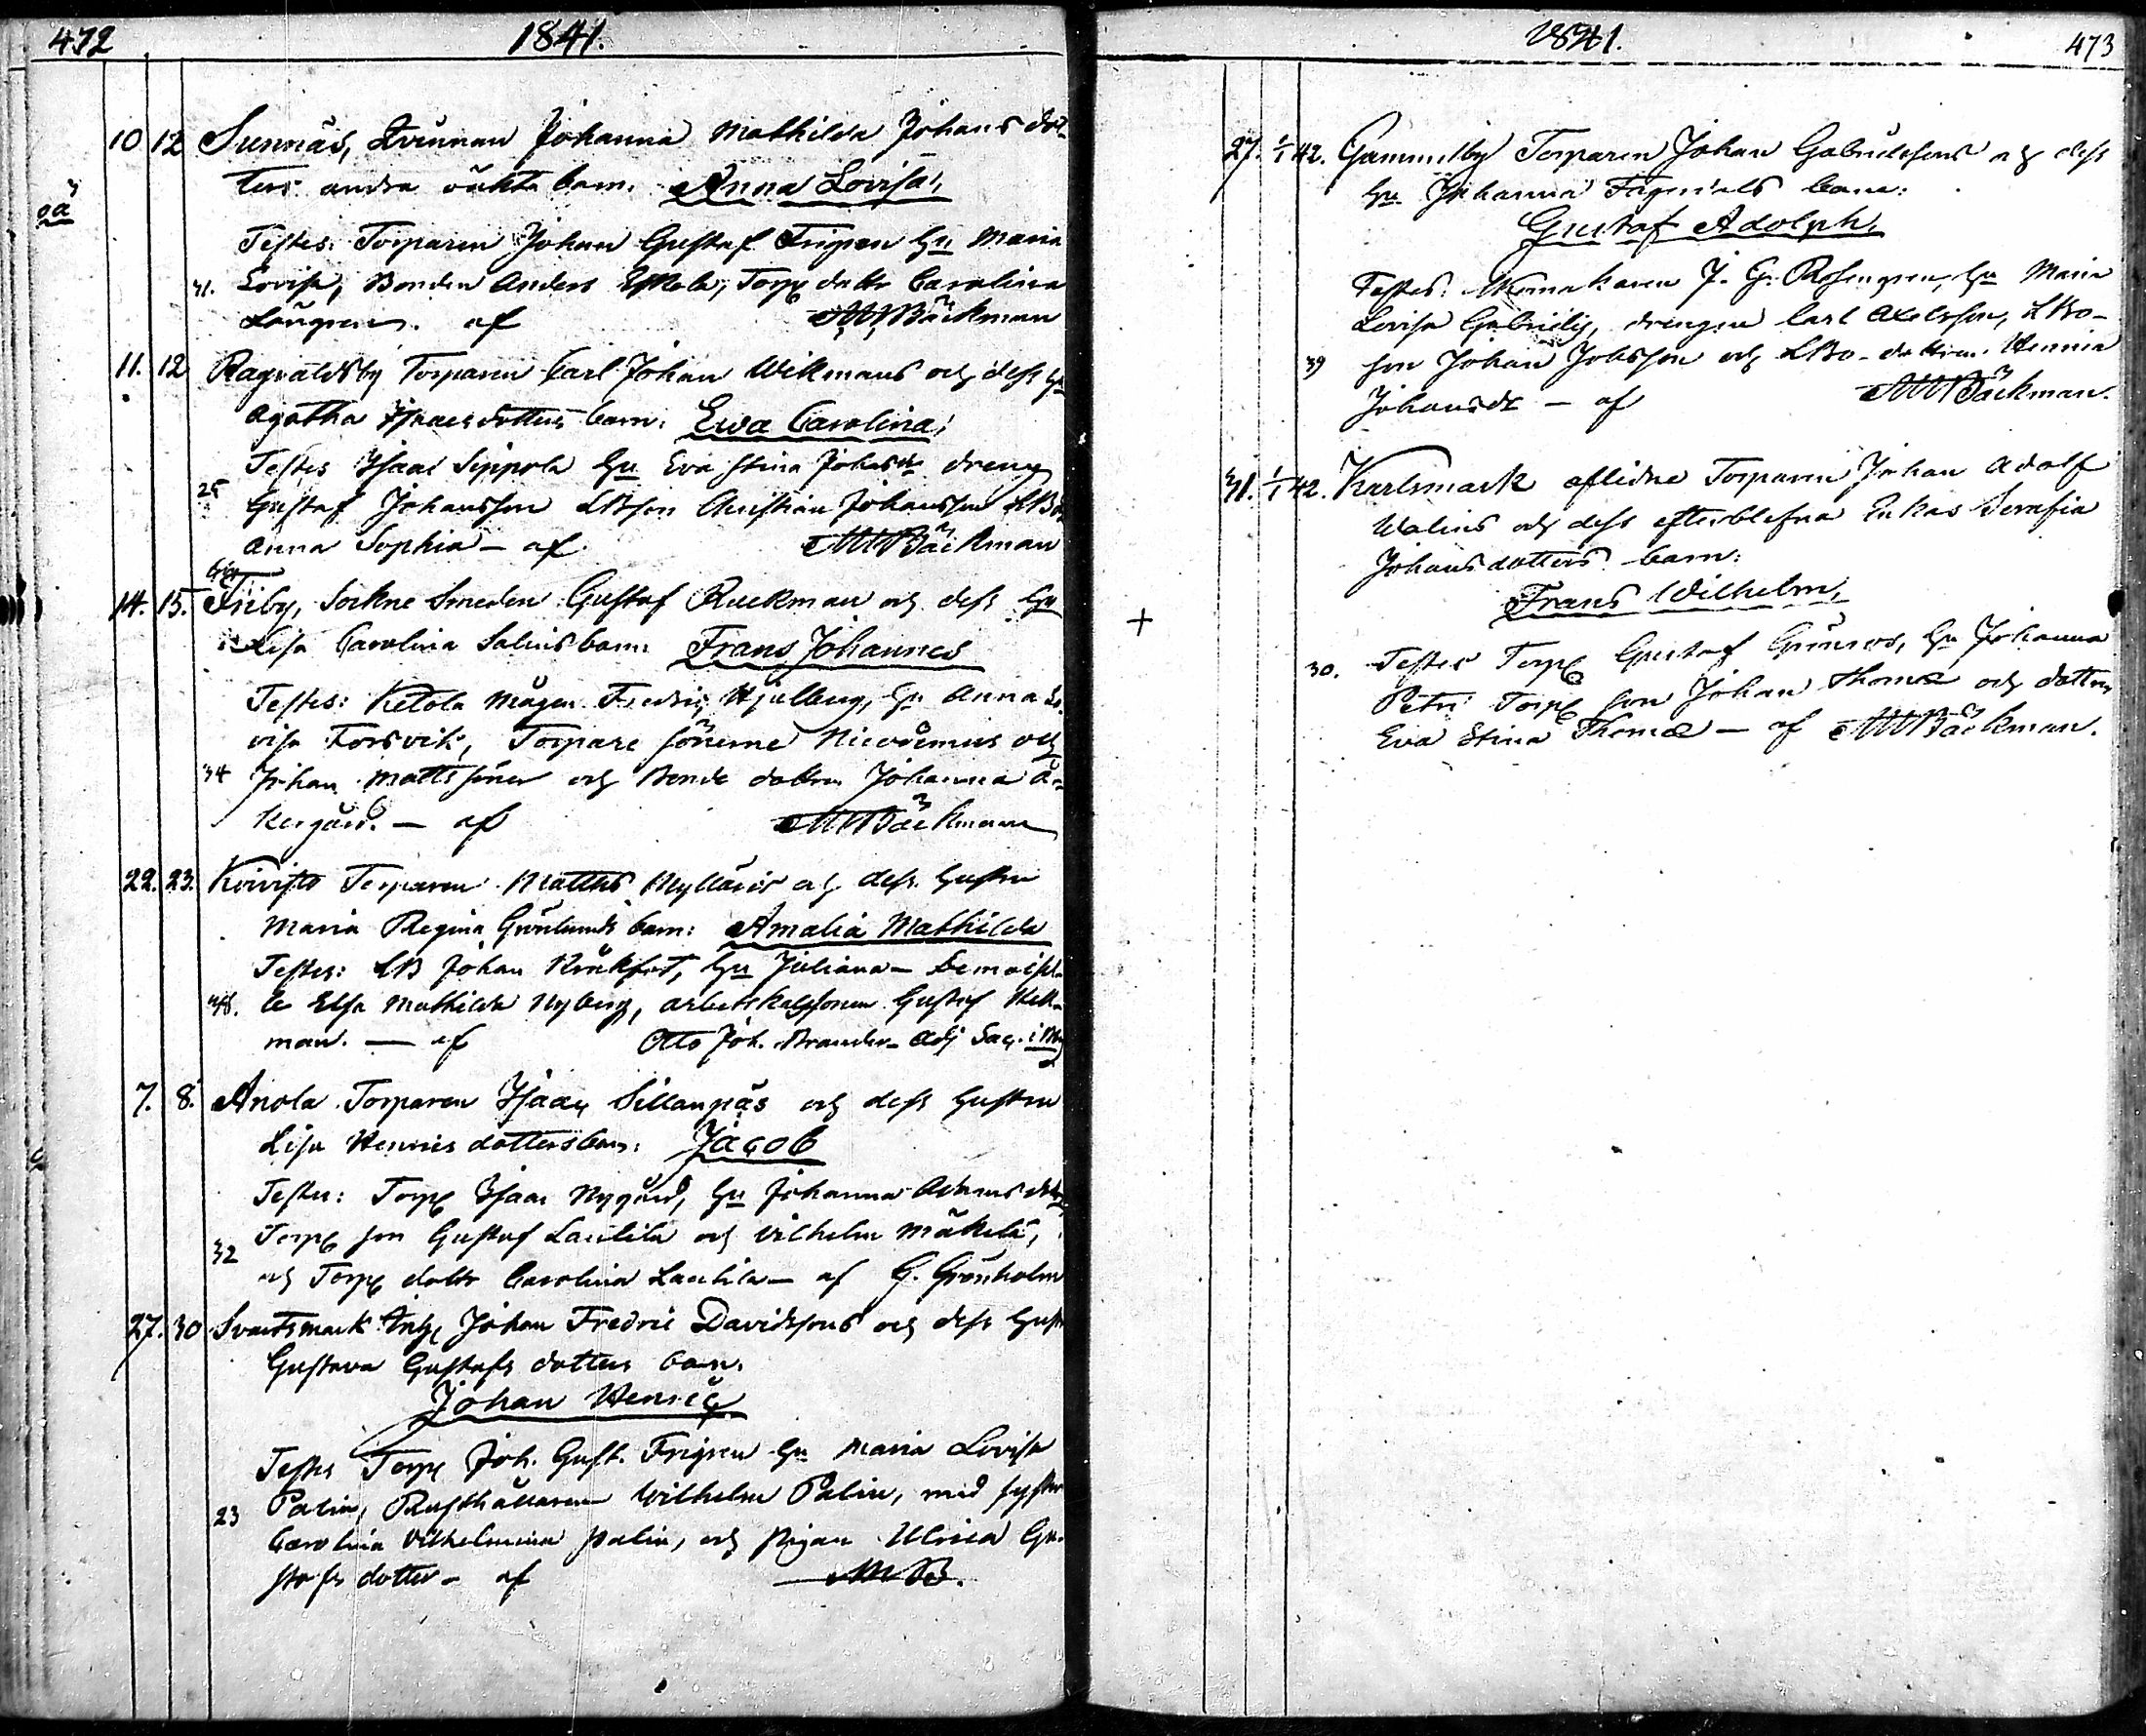 472 1841.
10 12 Sunnäs, Qvinnan Johanna Mathilda Johansdot-
ters andra oäkta barn. Anna Lovisa,
Testes: Torparen Johan Gustaf Frigren Hu Maria
31. Lovisa, Bonden Anders Eskola, Torp dottr Carolina
Löfgren. af MWBäckman
11. 12 Ragvaldsby Torparen Carl Johan Wikmans och dess Hu
Agatha Isaacsdotters barn. Ewa Carolina,
Testes Isaac Seppola Hu Eva Stina Johansdr dreng
25 Gustaf Johansson LBson Christian Johansson
Anna Sophia – af MWBäckman
14. 15. Friby, Sockne Smeden Gustaf Ruckman och dess Hu
Lisa Carolina Salins barn: Frans Johannes
Testes: Ketola Mågen Fredric Hjulberg, Hu Anna Lo-
visa Forsvik, Torpare sönerne Nicodemus och
34 Johan Mattssöner och Bonde dottren Johanna Å-
kergård. – af MWBäckman
22. 23. Koivisto Torparen Matths Mylläris och dess Hustru
Maria Regina Grönlunds barn: Amalia Mathilda
Testes: LB Johan Kråkfot, Hu Juliana – Demoisel-
48. le Elsa Mathilda Nyberg, arbetskarlssonen Gustaf Hell-
man. — af Otto Joh. Brander – Adj Sac. i
7. 8. Anola Torparen Isaac Sillanpäs och dess Hustru
Lisa Henricsdotters barn: Jacob
Testes: Torp Isaac Nygård, Hu Johanna Adamsdotter
32 Torp son Gustaf Laulila och Vilhelm Mäkelä,
och Torp dottr Carolina Laulila – af G. Grönholm
27. 30 Svartsmark Johan Fredric Davidssons och dess Hust
Gustava Gustafs dotters barn.
Johan Henric
Testes Torp Joh. Gust. Frigren Hu Maria Lovisa
23 Palin, Rusthållaren Wilhelm Palin, med syster
Carolina Vilhelmina Palin, och Pigan Ulrica Gu-
stafs dotter – af MWB.
1841. 473
27. 1/1 42. Gammelby Torparen Johan Gabrielssons och dess
Hu Johanna Fageriels barn:
Gustaf Adolph,
Testes: Skomakaren J. G. Rosengren, Hu Maria
Lovisa Gabrielsd, drengen Carl Axelsson, LBo-
39 son Johan Jobsson och LBo-dottren Henrica
Johansdr – af MWBäckman.
31. 1/1 42. Karlsmark aflidne Torparen Johan Adolf
Walins och dess efterblefna Enkas Serafia
Johansdotters barn:
Frans Wilhelm,
+
30. Testes Torp Gustaf Grönroos, Hu Johanna
Petri Torp son Johan Thomæ och dottren
Eva Stina Thomæ – af MWBäckman.